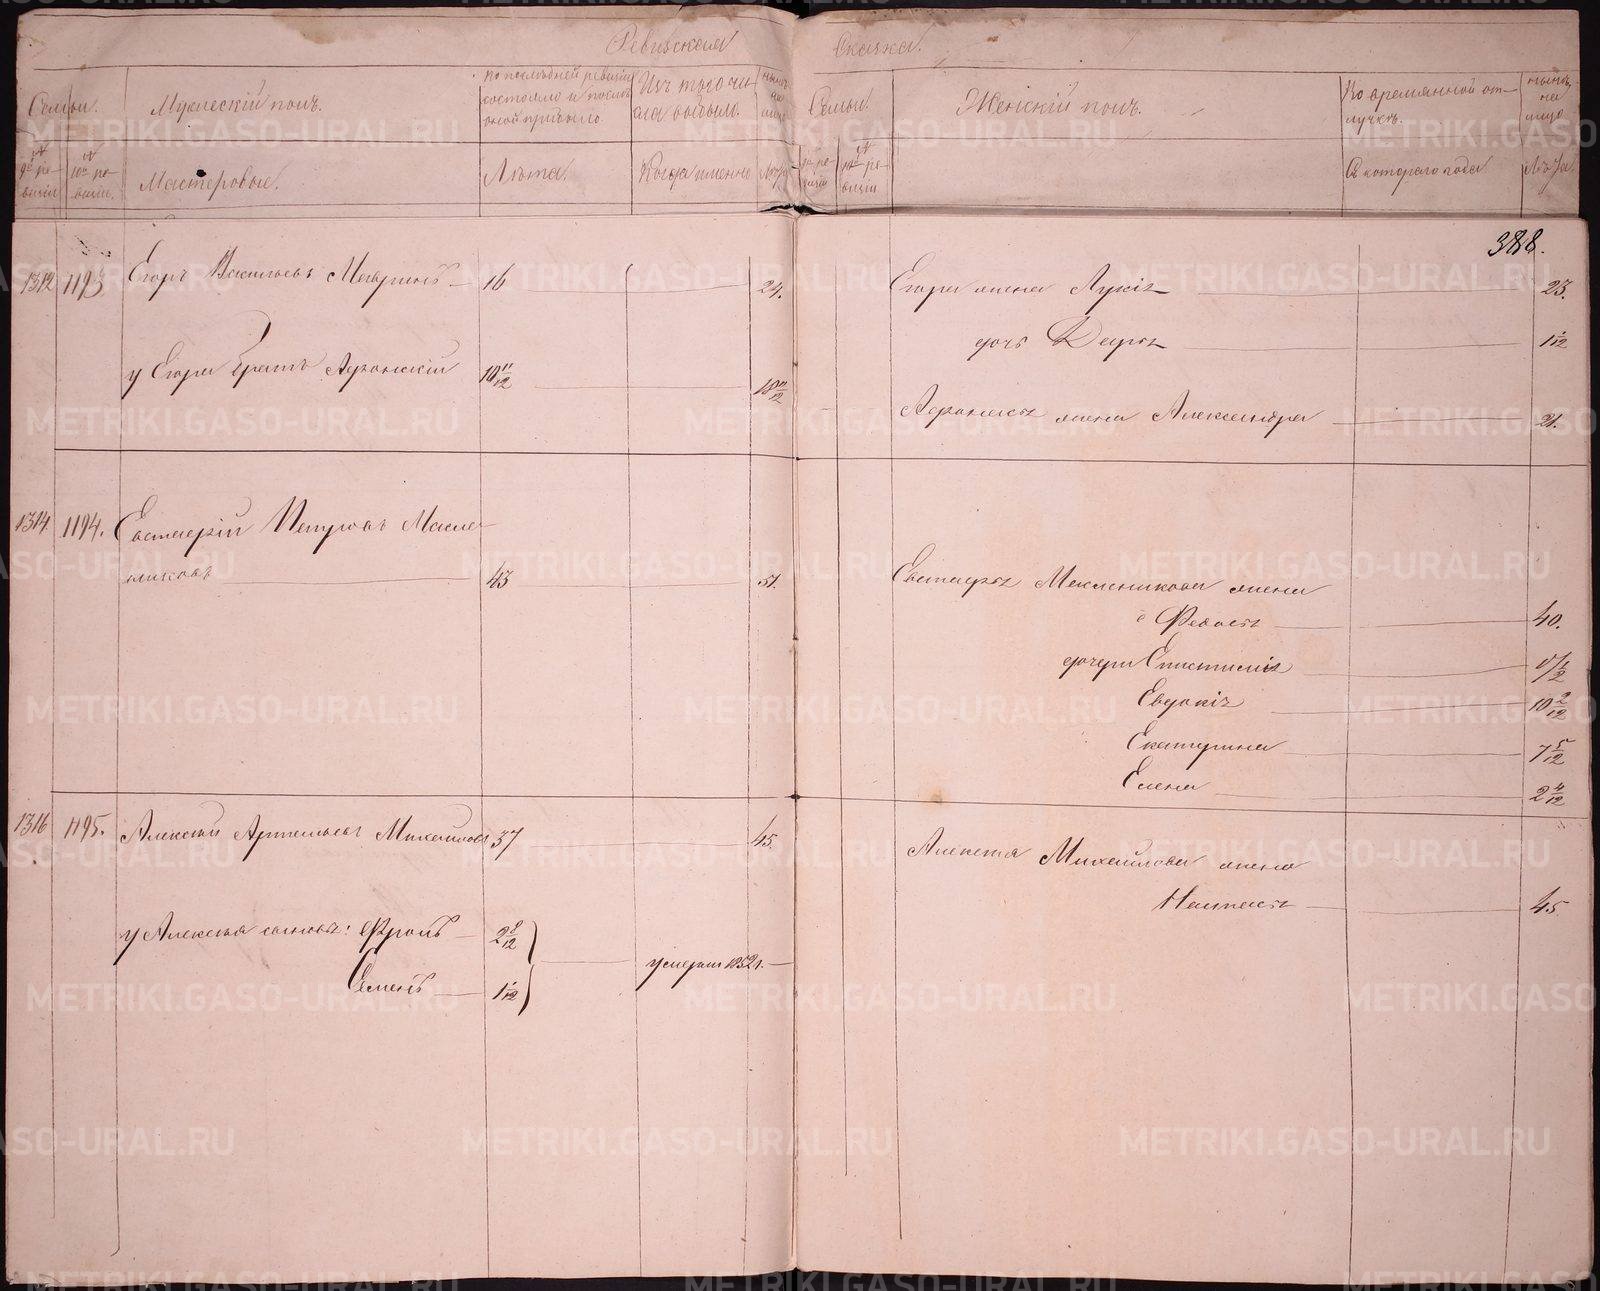 Ревизская Сказка.
Семьи.
Мужескій полъ.
По последней ревизіи
состояло и после
оной прибыло
Изъ того чи-
сла выбыло.
ныне
на
лицо
Семьи.
Женскій полъ.
Во временной от-
лучке.
ныне
на
лицо
№
9й ре-
визіи
№
10й ре-
визіи.
Мастеровые.
Лета.
Когда именно
Лета
9й ре-
визіи
№
10й ре-
визіи
Съ котораго года
Лета.
388.
1312 1193 Егоръ Васильевъ 16 24.
Егора жена Лукія 23.
дочь Дарья 1 1/12
у Егора братъ Афонасій 10 11/12 18 11/12
Афонасья жена Александра 21.
1314 1194. Евстафій Петровъ Масле-
никовъ 43 51.
Евстафья Масленикова жена
Федосья 40.
дочери Епистимія
Евдокія 10 2/12
Екатерина 7 5/12
Елена 2 4/12
1316 1195. Алексей Артемьевъ Михайловъ 37 45.
Алексея Михайлова жена
Настасья 45
у Алексея сыновья: Фролъ 2 8/12
Семенъ 1 1/12
умерли 1852 г.
METRIKI.GASO-URAL.RU